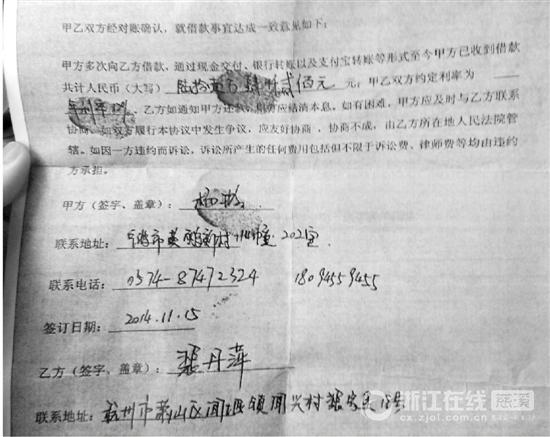 甲乙双方经对账确认，就借款事宜达成一致意见如下：
甲方多次向乙方借款，通过现金交付、银行转账以及支付宝转账等形式至今甲方已收到借款
共计人民币（大写） 贰佰元 元；甲乙双方约定利率为
乙方如通知甲方还款，甲方应结清本息。如有困难，甲方应及时与乙方联系
协商。如双方履行本协议中发生争议，应友好协商，协商不成，由乙方所在地人民法院管
辖。如因一方违约而诉讼，诉讼所产生的任何费用包括但不限于诉讼费、律师费等均由违约
方承担。
甲方（签字、盖章）：
联系地址： 市 新村 202室
联系电话： 0574-87472324 18094559455
签订日期： 2014.11.15
乙方（签字、盖章）： 裴丹萍
联系地址： 杭州市萧山区闻堰镇闻兴村
浙江在线 慈溪
cx.zjol.com.cn